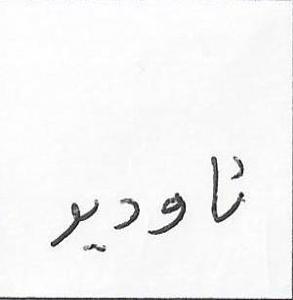 ئاودیو